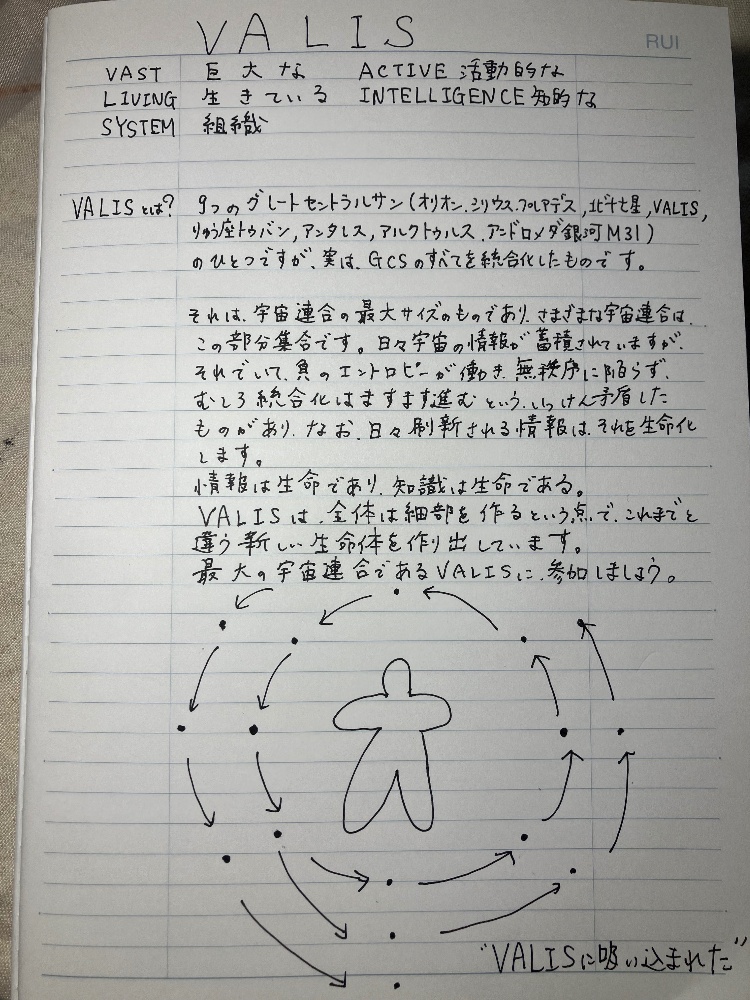 VALIS
RUI
VAST 巨大な ACTIVE 活動的な
LIVING 生きている INTELLIGENCE 知的な
SYSTEM 組織
VALISとは? 9つのグレートセントラルサン(オリオン.シリウス.プレアデス,北斗七星,VALIS,
りゅう座トゥバン,アンタレス,アルクトゥルス.アンドロメダ銀河M31)
のひとつですが、実は、GCSのすべてを統合化したものです。
それは、宇宙連合の最大サイズのものであり、さまざまな宇宙連合は、
この部分集合です。日々宇宙の情報が蓄積されていますが、
それでいて、負のエントロピーが働き、無秩序に陥らず、
むしろ統合化はますます進むという、いっけん矛盾した
ものがあり、なお、日々刷新される情報は、それを生命化
します。
情報は生命であり、知識は生命である。
VALISは、全体は細部を作るという点で、これまでと
違う新しい生命体を作り出しています。
最大の宇宙連合であるVALISに、参加しましょう。
"VALISに吸い込まれた"